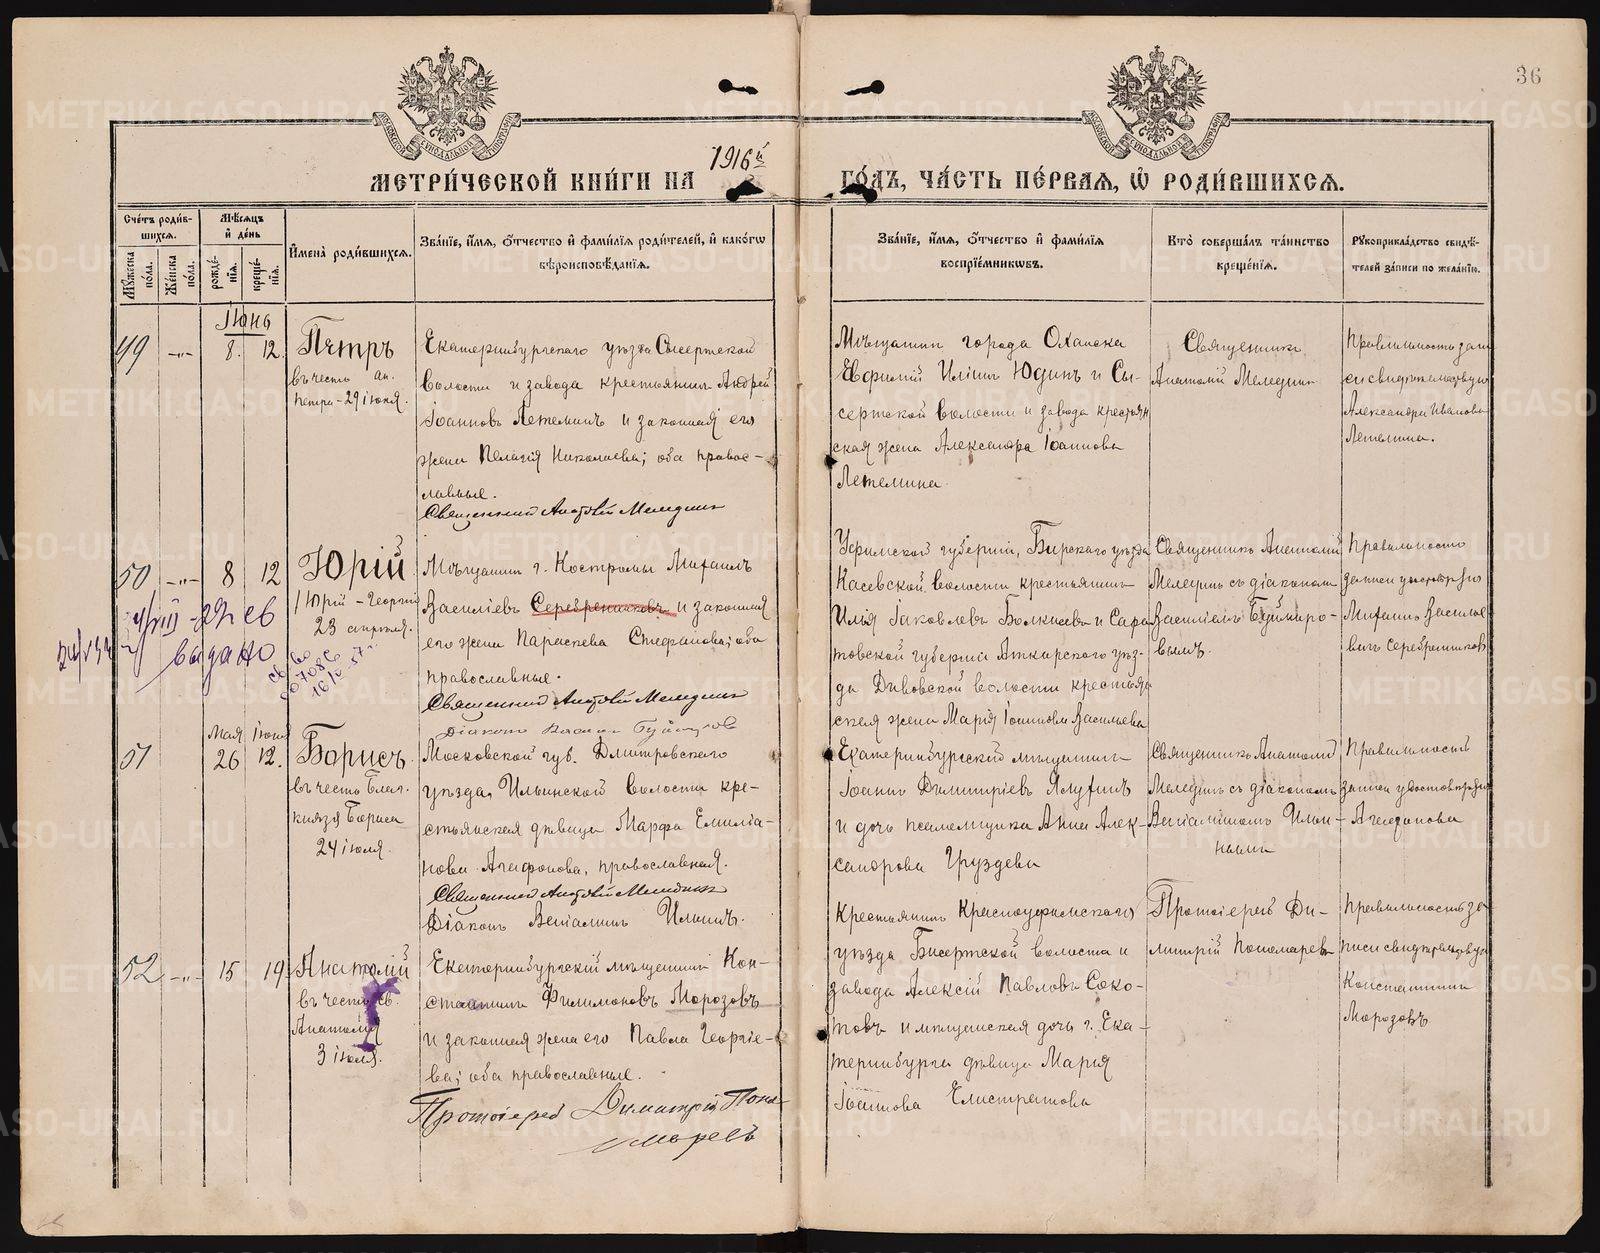 36
1916й
МЕТРИ́ЧЕСКОЙ КНИ́ГИ НА
ГО́ДЪ, ЧА́СТЬ ПЕ́РВАЯ, Ѡ҆ РОДИ́ВШИХСЯ.
Счетъ роди́вшихся.
Мѣсяцъ и҆ де́нь
И҆мена̀ роди́вшихся.
Зва́нїе, и҆́мя, ѻ҆́тчество и҆ фами́лїя роди́телей, и҆ како́гѡ
вѣроисповѣ́данїя.
Му́жеска по́ла.
Же́нска по́ла.
рожде́нїя.
креще́нїя.
Зва́нїе, и҆́мя, ѻ҆́тчество и҆ фами́лїя
воспрїе́мникѡвъ.
Кто̀ соверша́лъ та́инство
креще́нїя.
Рꙋкоприкла́дство свидѣ́-
телей за́писи по жела́нїю.
Іюнь
49 -„- 8. 12.
Петръ
въ честь ап.
Петра - 29 іюня.
Екатеринбургскаго уѣзда Сысертской
волости и завода крестьянинъ Андрей
Іоанновъ Летеминъ и законная его
жена Пелагія Николаева; оба право-
славные.
Священникъ Анатолій Мелединъ
Мѣщанинъ города Оханска
Евфимій Иліинъ Юдинъ и Сы-
сертской волости и завода крестьян
ская жена Александра Іоаннова
Летемина.
Священникъ
Анатолій Меледин
Правильность запи
си свидѣтельствую
Александра Иванова
Летемина.
50 -„- 8 12
Юрій
/Юрій - Георгій
23 апрѣля.
выдано
Мѣщанинъ г. Костромы Михаилъ
Василіевъ Серебренниковъ и законная
его жена Параскева Стефанова; оба
православные.
Священникъ Анатолій Меледин
Уфимской губерніи, Бирскаго уѣзда
Касевской волости крестьянинъ
Илья Іаковлевъ Болкисевъ и Сара
товской губерніи Аткарскаго уѣз-
да Дивовской волости крестьян
ская жена Марія Іоаннова Васильева
Священникъ Анатолій
Меледин съ діакономъ
Василіемъ Буймиро-
вымъ.
Правильность
записи удостовѣряю
Михаилъ Василье
вичъ Серебренников
51
Мая Іюня
26 12.
Борисъ
въ честь Благ.
князя Бориса
24 іюля.
Московской губ. Дмитровскаго
уѣзда, Ильинской волости кре-
стьянская дѣвица Марфа Емилiа-
нова Агафонова, православная.
Священникъ Анатолій Меледин
Діаконъ Веніаминъ Ильинъ.
Екатеринбургскій мѣщанинъ
Іоаннъ Димитріевъ Ялунинъ
и дочь псаломщика Анна Алек-
сандрова Груздева
Священникъ Анатолій
Меледин съ діакономъ
Веніаминомъ Ильи-
нымъ
Правильность
записи удостовѣряю
Агафонова
52 -„- 15 19
Анатолій
въ честь св.
Анатолія
3 іюля.
Екатеринбургскій мѣщанинъ Кон-
стантинъ Филимоновъ Морозовъ
и законная жена его Павла Георгіе-
ва; оба православные.
Протоіерей Димитрій Поно-
маревъ
Крестьянинъ Красноуфимскаго
уѣзда Бисертской волости и
завода Алексій Павловъ Соко-
ловъ и мѣщанская дочь г. Ека-
теринбурга дѣвица Марія
Іоаннова Елистратова
Протоіерей Ди-
митрій Пономарев
Правильность за
писи свидѣтельствую
Константинъ
Морозовъ